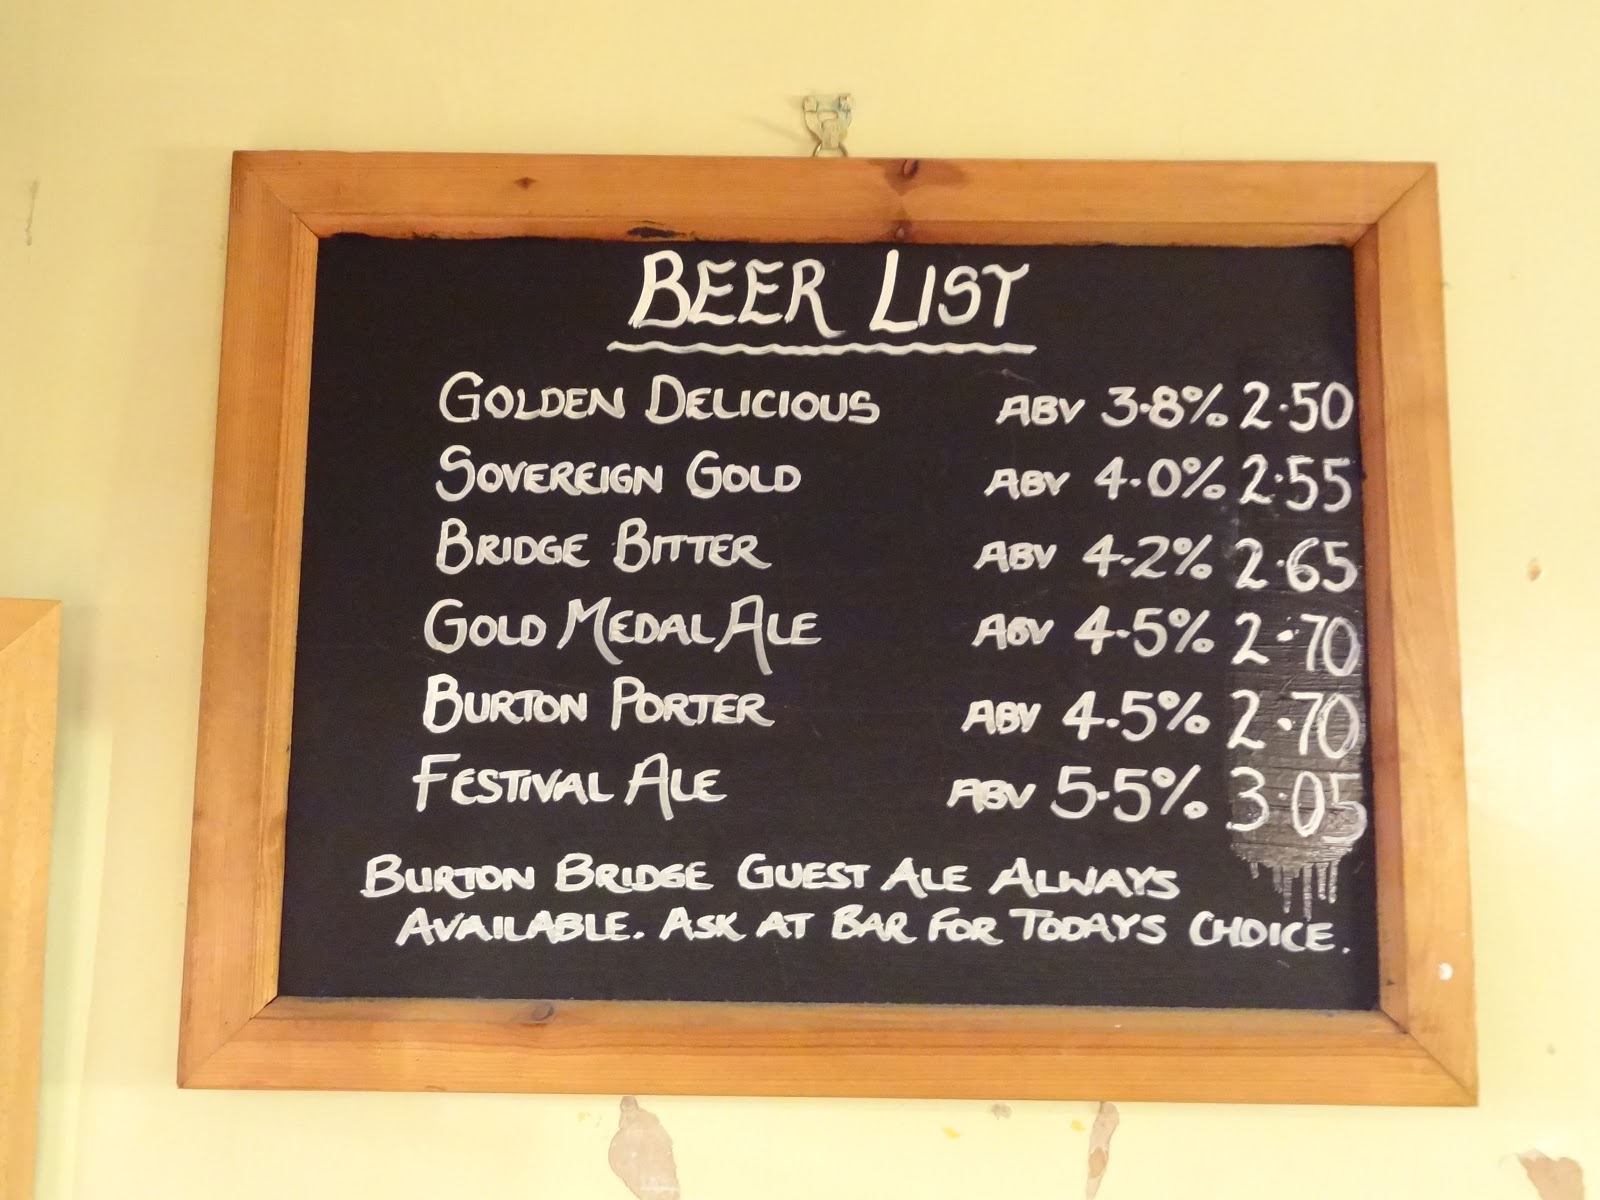 BEER LIST
GOLDEN DELICIOUS ABV 3.8% 2.50
SOVEREIGN GOLD ABV 4.0% 2.55
BRIDGE BITTER ABV 4.2% 2.65
GOLD MEDAL ALE ABV 4.5% 2.70
BURTON PORTER ABV 4.5% 2.70
FESTIVAL ALE ABV 5.5% 3.05
BURTON BRIDGE GUEST ALE ALWAYS
AVAILABLE. ASK AT BAR FOR TODAYS CHOICE.